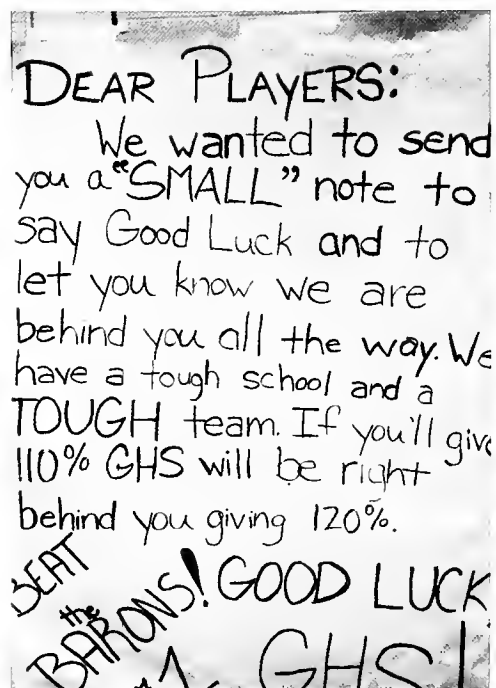 DEAR PLAYERS:
We wanted to send
you a "SMALL" note to
say Good Luck and to
let you know we are
behind you all the way. We
have a tough school and a
TOUGH team. If you'll give
110% GHS will be right
behind you giving 120%.
BEAT
the
BARONS!
GOOD LUCK
#1 GHS!